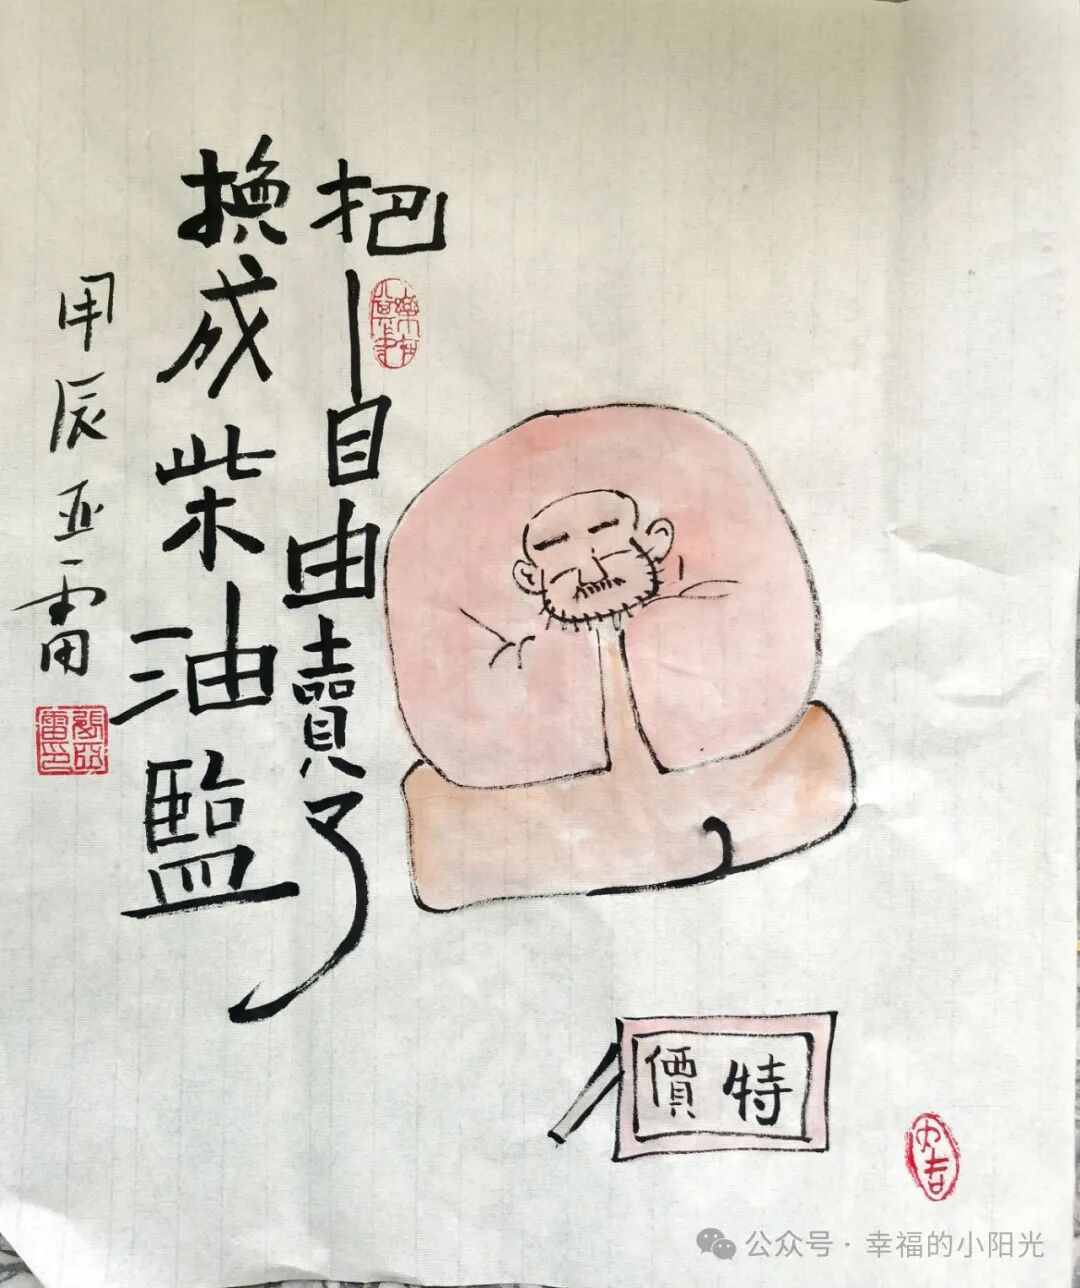 把自由賣了
換成柴油鹽
甲辰亚雷
特價
公众号·幸福的小阳光